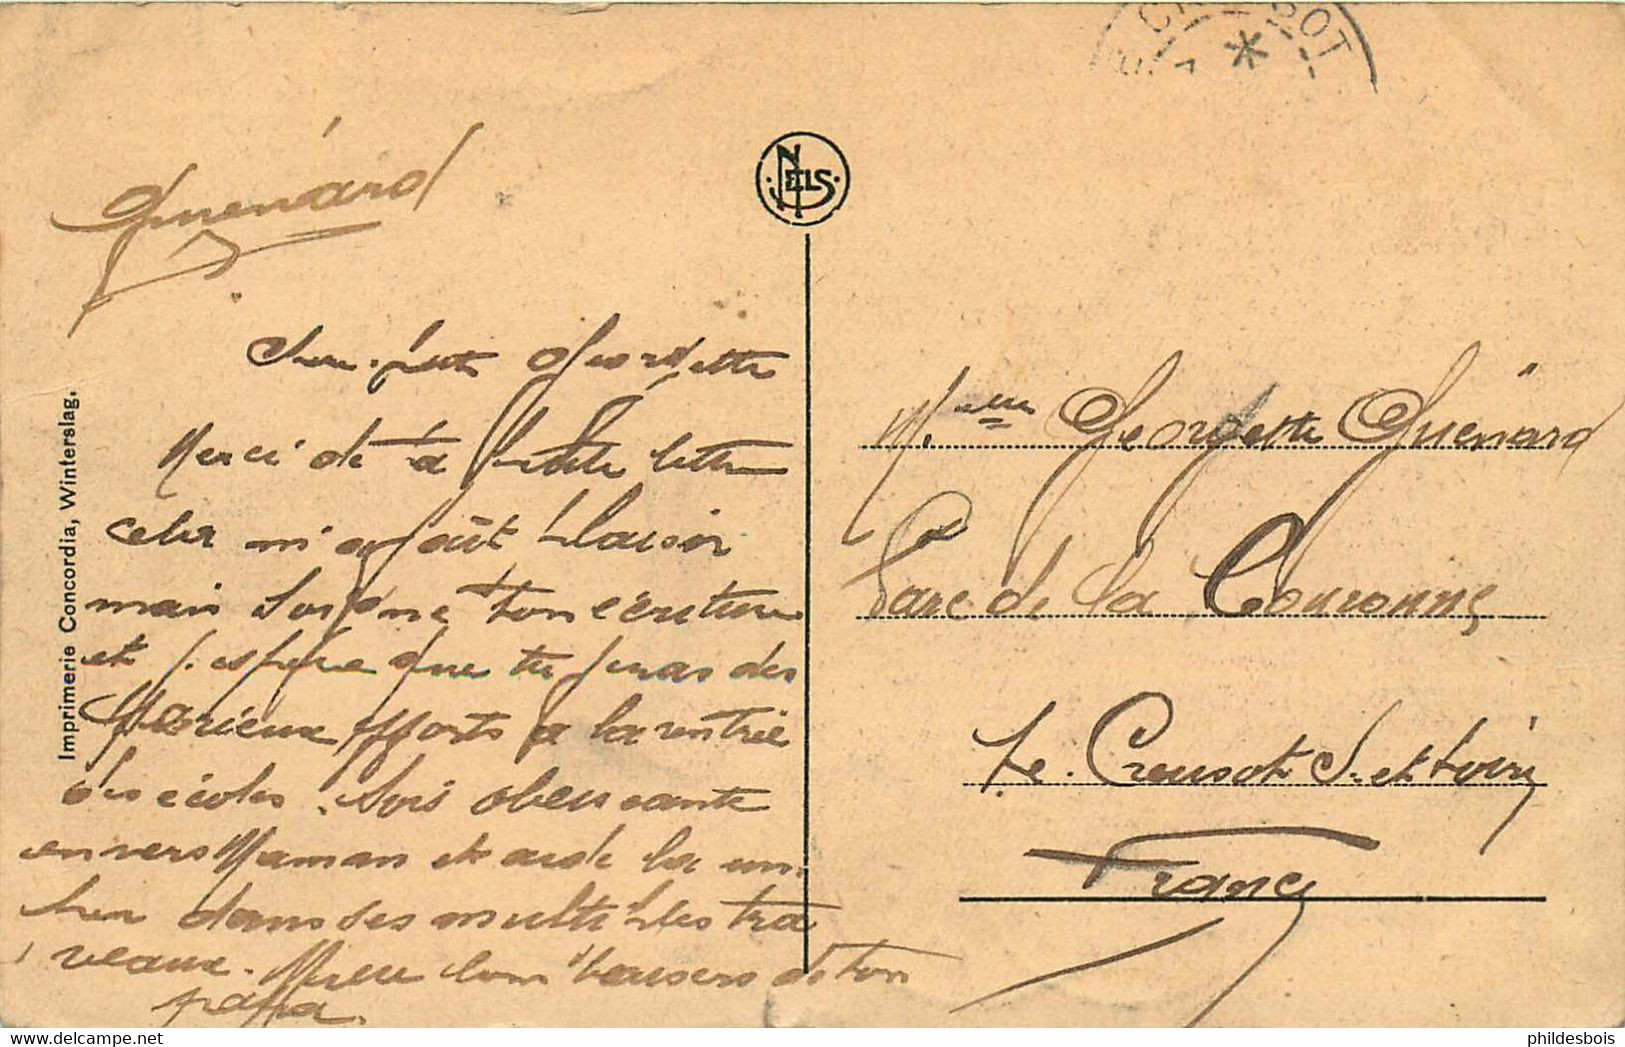 LE CREUSOT
NELS
Guénard
Imprimerie Concordia, Winterslag.
Georgette
Merci de ta petite lettre
cela m'a fait plaisir
mais soigne ton écriture
et j'espère que tu feras des
sérieux efforts a la rentrée
des écoles. Sois obeissante
envers Maman et aide la un
dans ses multiples tra
veaux. Mille bons baisers de ton
papa.
Melle Georgette Guénard
Parc de la Couronne
Le Creusot S. et Loire
France
delcampe.net
phildesbois